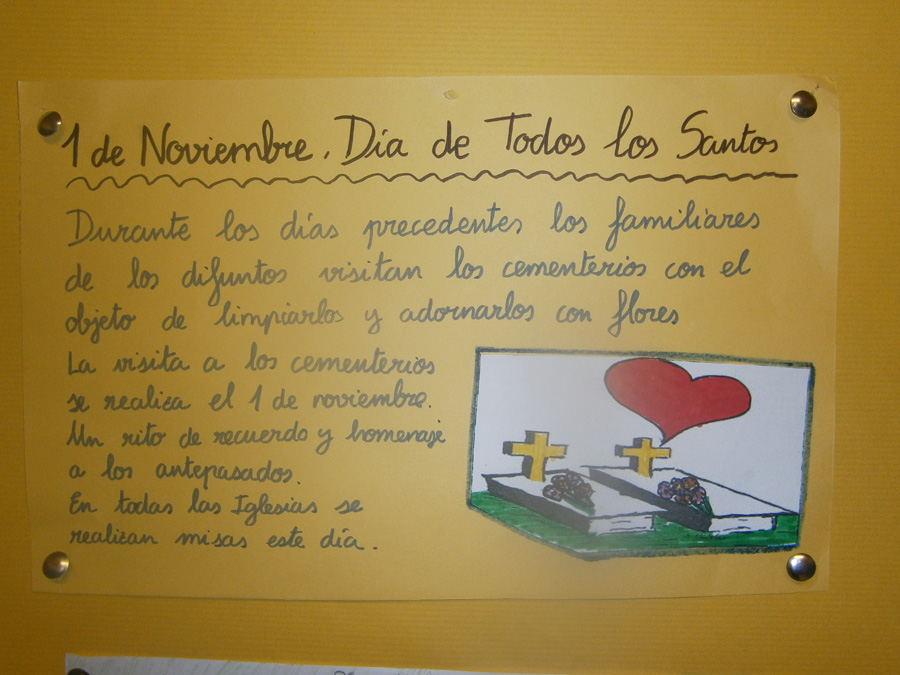 1 de Noviembre. Día de Todos los Santos
Durante los días precedentes los familiares
de los difuntos visitan los cementerios con el
objeto de limpiarlos y adornarlos con flores
La visita a los cementerios
se realiza el 1 de noviembre.
Un rito de recuerdo y homenaje
a los antepasados.
En todas las Iglesias se
realizan misas este día.